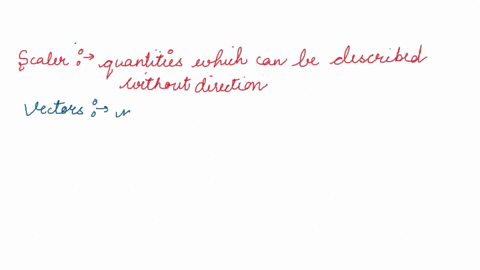 Scaler :→ quantities which can be described
without direction
Vectors :→